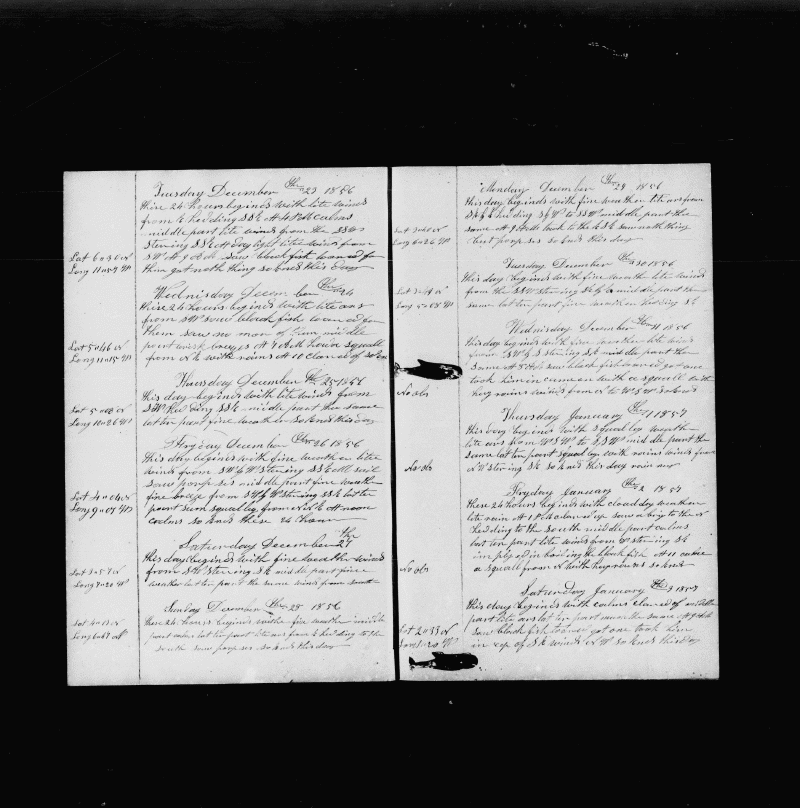 Tuesday December The 23 1856
these 24 hours begins with lite winds
from E hedding SSE At 4 PM calms
middle part lite winds from the SSW
stering SSE At day light lite winds from
SW At 9 AM saw blackfish loared for
them got noth thing so Ends this day
Lat 6=03 N
Long 11=59 W
Wednisday Decem ber The 24
these 24 hours begins with lite ars
from SW saw black fish loared for
them saw no mor of them middle
part wisk breezes At 7 AM have a squall
from N E with rains At 10 clared of so Ends
Lat 5=46 N
Long 11=15 W
Thursday December The 25 1856
this day begins with lite winds from
SW hedding SSE middle part the same
latten part fine weather so Ends this day
Lat 5=00 N
Long 10=26 W
Fryday December The 26 1856
this day begins with fine weather lite
winds from SW by W stering SSE AM sail
saw porpses middle part fine weather
fine breze from SW by W stering SSE latter
part squaley from N E At noon
calms so Ends these 24 hours
Lat 4=04 N
Long 9=01 W
Saturday December The 27
this day begins with fine weather winds
from SW stering SE middle part fine
weather latten part the same winds from south
Lat 3=57 N
Long 7=20 W
Sunday December The 28 1856
these 24 hours begins with fine weather middle
part calms latten part lite ars from E hedding to the
south saw porpses so Ends this day
Lat 4=13 N
Long 6=47 W
Monday December The 29 1856
this day begins with fine weather lite ars from
hedding S by W to SSW middle part the
same At 9 AM tack to the ESE saw noth thing
but porpses so Ends this day
Lat 3=40 N
Long 6=26 W
Tuesday December The 30 1856
this day begins with fine weather lite winds
from the SSW stering SE by E middle part the
same latten part fine weather hedding SE
Long 5=08 W
Wednisday December The 31 1856
this day begins with fine weather lite winds
from SW by S stering SE middle part the
same At 8 AM saw black fish loared got one
took him in came on with a squall with
hevy rains winds from N to WSW so Ends
No obs
Thursday January The 1 1857
this day begins with squaley weather
lite ars from WSW to SSW middle part the
same latten part squaley with rains winds from
NW stering SE so Ends this day rain
No obs
Fryday January The 2 1857
these 24 hours begins with clouday weather
lite rain At 1 PM clared up saw a brig to the N
hedding to the south middle part calms
latten part lite winds from stering SE
imployed in boiling the black fish At 11 came
a squall from N with hevy raines so Ends
No obs
Saturday January The 3 1857
this day begins with calms clared of middle
part lite ars latten part much the same At 9 AM
saw black fish loared got one took him
in up of SE winds N W so Ends this Day
Lat 2=33 N